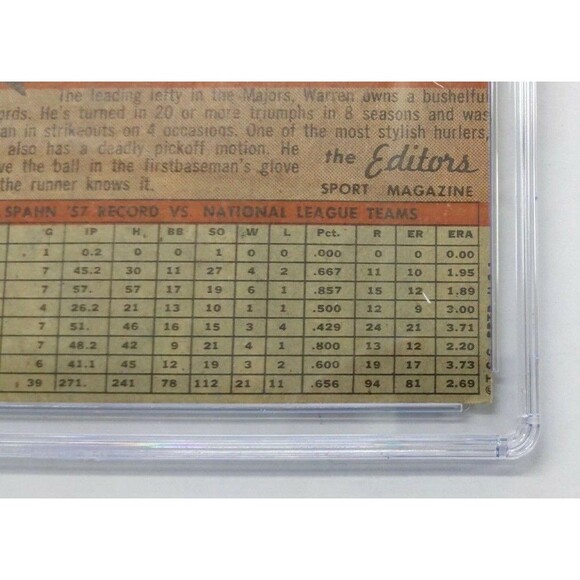 The leading lefty in the Majors, Warren owns a bushelful
ords. He's turned in 20 or more triumphs in 8 seasons and was
an in strikeouts on 4 occasions. One of the most stylish hurlers,
also has a deadly pickoff motion. He
ve the ball in the firstbaseman's glove
the runner knows it.
the Editors
SPORT MAGAZINE
SPAHN '57 RECORD VS. NATIONAL LEAGUE TEAMS
G IP H BB SO W L Pct. R ER ERA
1 0.2 0 0 1 0 0 .000 0 0 0.00
7 45.2 30 11 27 4 2 .667 11 10 1.95
7 57. 57 17 19 6 1 .857 15 12 1.89
4 26.2 21 13 10 1 1 .500 12 9 3.00
7 51. 46 16 15 3 4 .429 24 21 3.71
7 48.2 42 9 21 4 1 .800 13 12 2.20
6 41.1 45 12 19 3 2 .600 19 17 3.73
39 271. 241 78 112 21 11 .656 94 81 2.69